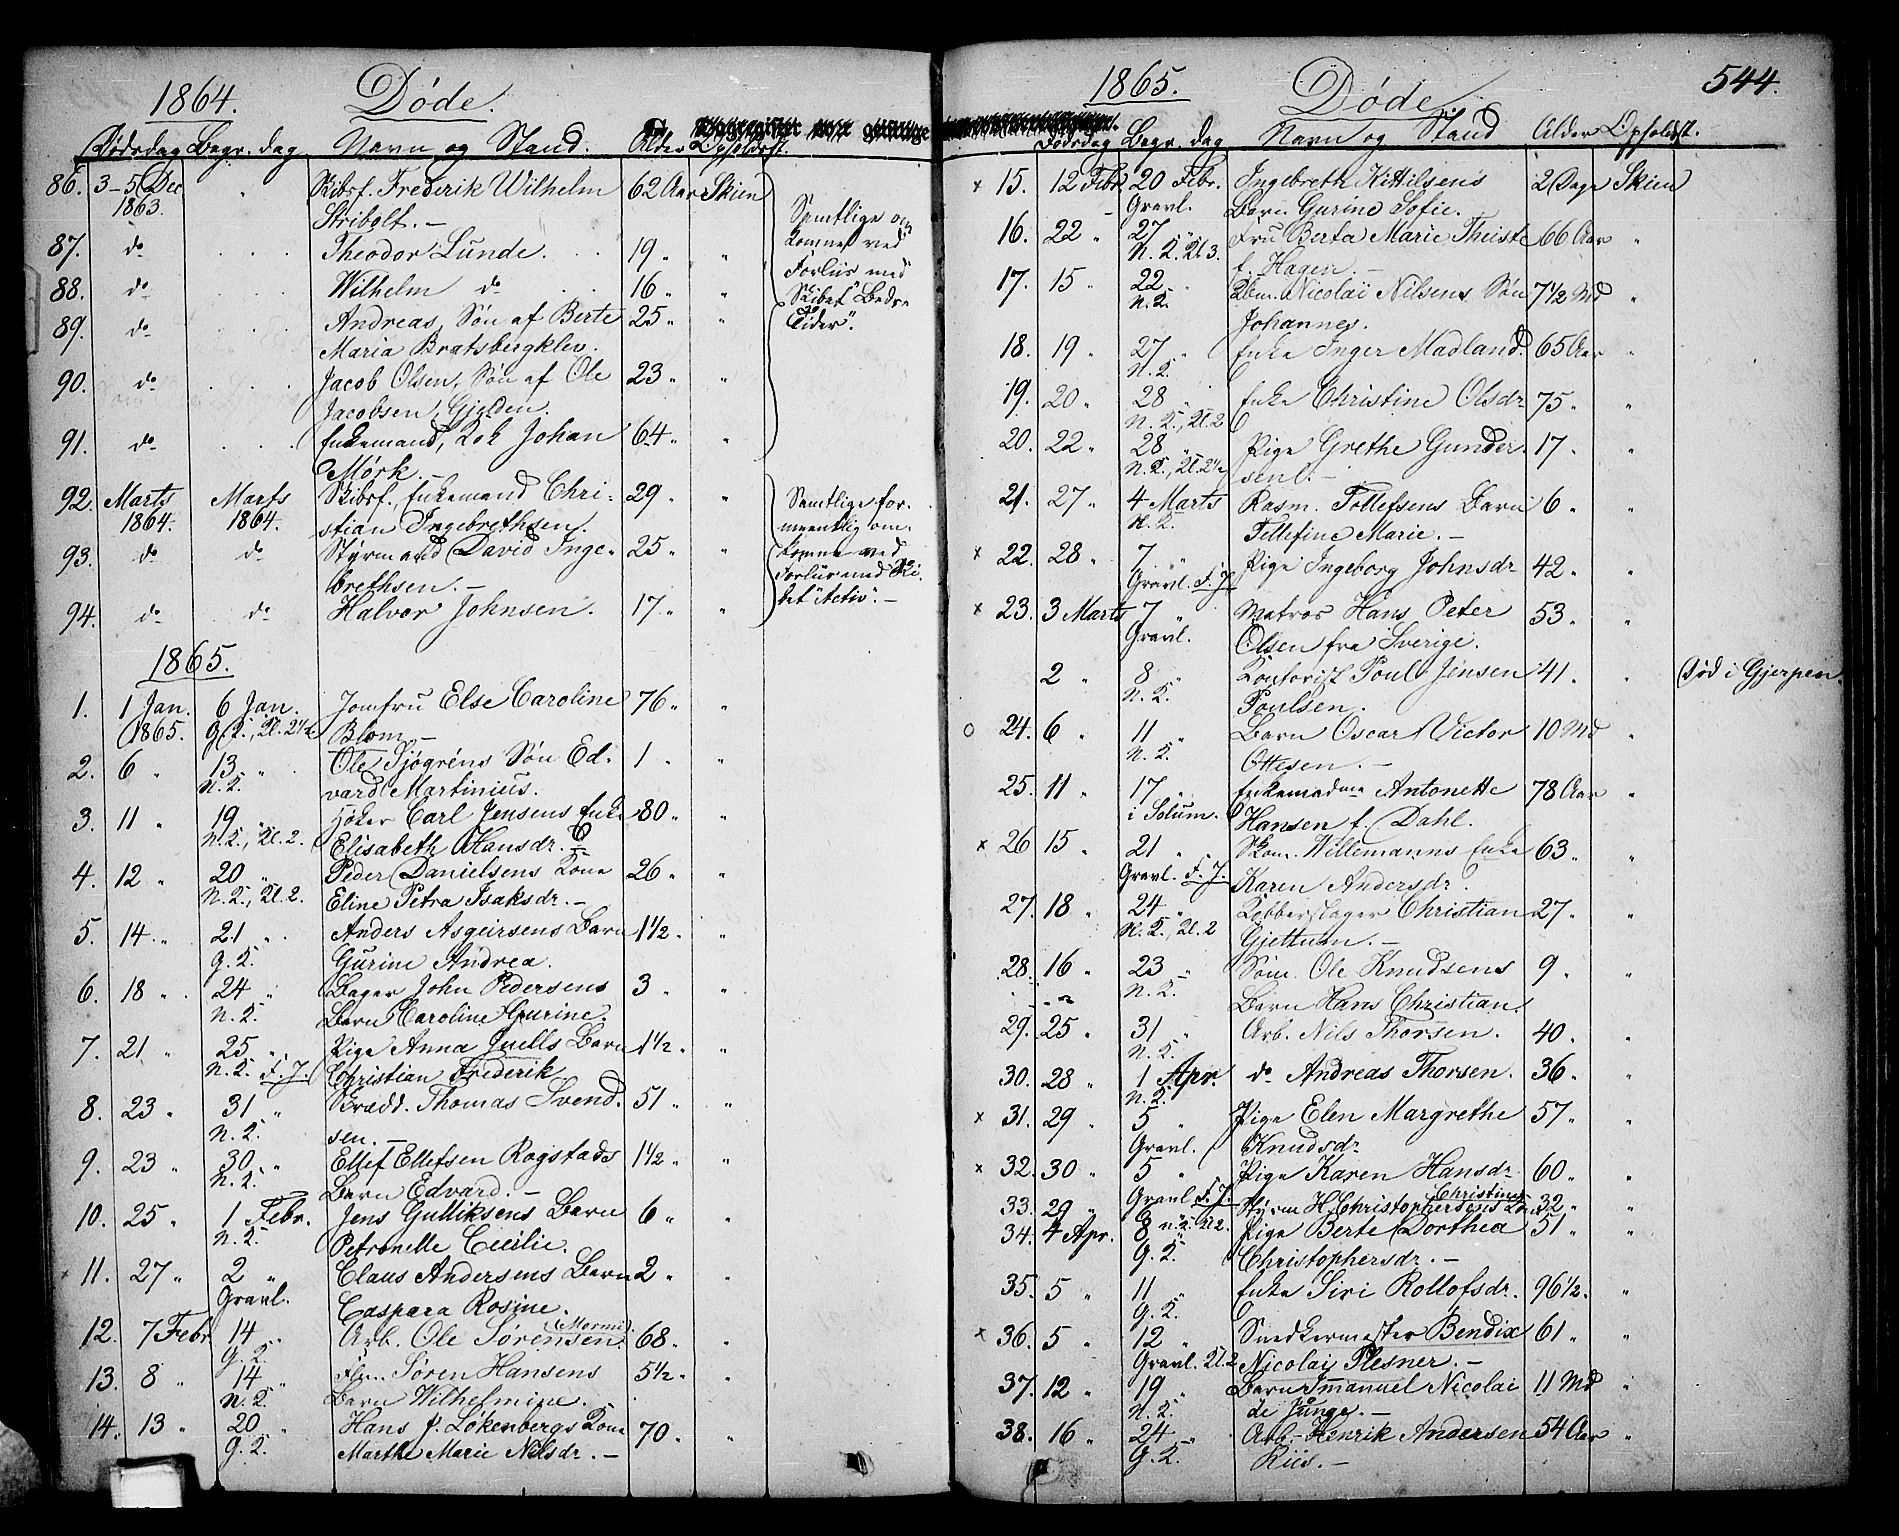 1864. Døde.
Dødsdag Begr. dag Navn og Stand. Alder Opholdsst.
86. 3-5 Dec 1863. Skibsf. Frederik Wilhelm 62 Aar Skien
Stribolt. —
87. do Theodor Lunde. 19 "
88. do Wilhelm do 16 "
89. do Andreas, Søn af Berte 25 "
Maria Bratsbergklev.
90. do Jacob Olsen, Søn af Ole 23 "
Jacobsen Gjelden.
91. do Enkemand, Kok Johan 64 "
Mørk. —
Samtlige om
komne ved
Forlis med
Skibet "Bedre
Tider".
92. Marts 1864. Marts 1864. Skibsf. Enkemand Chri- 29 "
stian Ingebrethsen.
93. do do Styrmand David Inge- 25 "
brethsen. —
94. do do Halvor Johnsen. 17 "
Samtlige for-
mentlig om-
komne ved
Forlis med Ski-
bet "Activ". —
1865.
1. 1 Jan. 1865. 6 Jan. G.K., Kl. 2½ Jomfru Else Caroline 76 "
Blom —
2. 6 " 13 " N.K. Ole Sjøgréns Søn Ed- 1 "
vard Martinius.
3. 11 " 19 " N.K., Kl. 2. Høker Carl Jensens Enke 80 "
Elisabeth Hansdr. —
4. 12 " 20 " N.K., Kl. 2. Peder Danielsens Kone 26 "
Eline Petra Isaksdr. —
5. 14 " 21 " G.K. Anders Asgeirsens Barn 1½ "
Gurine Andrea.
6. 18 " 24 " N.K. Bager John Pedersens 3 "
Barn Caroline Gurine.
7. 21 " 25 " N.K. F.J. Pige Anna Juells Barn 1½ "
Christian Frederik
8. 23 " 31 " N.K. Skrædd. Thomas Svend- 51 "
sen. —
9. 23 " 30 " N.K. Ellef Ellefsen Rogstads 1½ "
Barn Edvard. —
10. 25 " 1 Febr. N.K. Jens Gulliksens Barn 6 "
Petronelle Cecilie.
11. 27 " 2 " Gravl. Claus Andersens Barn 2 "
Caspara Rosine.
12. 7 Febr 14 " G.K. Arb. Ole Sørensen (Mormon) 68 "
13. 8 " 14 " N.K. Søren Hansens 5½ "
Barn Wilhelmine.
14. 13 " 20 " G.K. Hans J. Løkenbergs Kone 70 "
Marthe Marie Nilsdr. —
1865. Døde. 544.
Dødsdag Begr. dag Navn og Stand Alder Opholdsst.
x 15. 12 Febr 20 Febr. Gravl. Ingebreth Kittilsens 2 Dage Skien
Barn Gurine Sofie.
16. 22 " 27 " N.K. Kl 3. Fru Berta Marie Theiste 66 Aar "
f. Hagen. —
17. 15 " 22 " N.K. Nicolai Nilsens Søn 7½ Md "
Johannes.
18. 19 " 27 " N.K. Enke Inger Madland. 65 Aar "
19. 20 " 28 " N.K., Kl. 2 Enke Christine Olsdr 75 "
20. 22 " 28 " N.K., Kl. 2½ Pige Grethe Gunder- 17 "
sen. —
21. 27 " 4 Marts N.K. Rasm. Tollefsens Barn 6 "
Tellefine Marie. —
x 22. 28 " 7 " Gravl. F.J. Pige Ingeborg Johnsdr 42 "
x 23. 3 Marts 7 " Gravl. Matros Hans Peter 53 "
Olsen fra Sverige.
2 " 8 " N.K. Kontorist Poul Jensen 41 " Død i Gjerpen.
Poulsen.
o 24. 6 " 11 " N.K. Barn Oscar Victor 10 Md "
Ottesen. —
25. 11 " 17 " i Solum. Enkemadme Antonette 78 Aar "
Hansen f. Dahl.
x 26 15 " 21 " Gravl. F.J. Skom. Willemanns Enke 63 "
Karen Andersdr.
27. 18 " 24 " N.K., Kl. 2 Kobberslager Christian 27 "
Gjettum. —
28. 16 " 23 " N.K. Søm. Ole Knudsens 9 "
Barn Hans Christian.
29. 25 " 31 " N.K. Arb. Nils Thorsen. 40 "
30. 28 " 1 Apr. N.K. do Andreas Thorsen. 36 "
x 31. 29 " 5 " Gravl. Pige Elen Margrethe 57 "
Knudsdr
x 32. 30 " 5 " Gravl. F.J. Pige Karen Hansdr. 60 "
33. 29 " 6 N.K. Kl 2. Styrm H. Christophersens Kone Christine 32 "
34. 4 Apr. 8 " G.K. Pige Berte Dorthea 51 "
Christophersdr. —
35. 5 " 11 " G.K. Enke Siri Rollofsdr. 96½ "
x 36. 5 " 12 " Gravl. Kl. 2 Snedkermester Bendix 61 "
Nicolai Plesner. —
37. 12 " 19 " N.K. Barn Imanuel Nicolai 11 Md "
de Junge. —
38. 16 " 24 " G.K. Arb. Henrik Andersen 54 Aar "
Riis. —